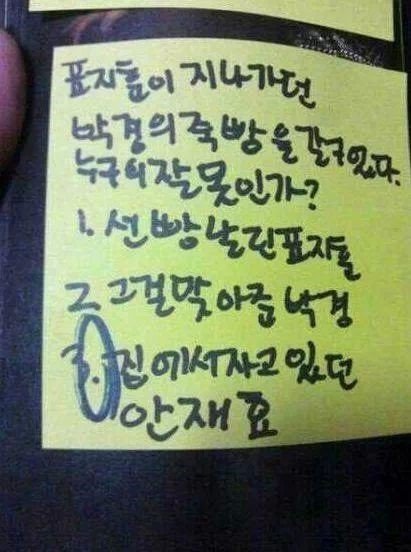 표지훈이 지나가던
박경의 죽빵을 갈구있다.
누구의 잘못인가?
1. 선빵날린표지훈
2. 그걸맞아준박경
3. 집에서자고있던
안재효